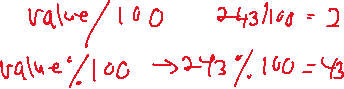 value/100 243/100 = 2
value%100 → 243%100 = 43